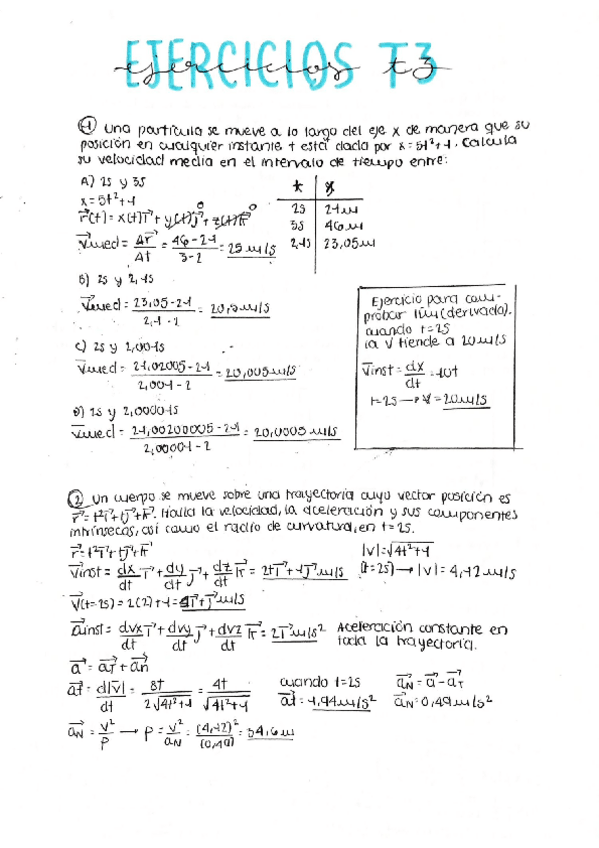 EJERCICIOS T3
ejercicios t3
① Una partícula se mueve a lo largo del eje x de manera que su
posición en cualquier instante t está dada por x = 5t²+1. Calcula
su velocidad media en el intervalo de tiempo entre:
A) 2s y 3s
x = 5t²+1
r⃗(t) = x(t)i⃗ + y(t)j⃗⁰ + z(t)k⃗⁰
v⃗med = Δr⃗/Δt = (46-21)/(3-2) = 25 m/s
t | x
2s | 21m
3s | 46m
2,1s | 23,05m
B) 2s y 2,1s
v⃗med = (23,05-21)/(2,1-2) = 20,5 m/s
C) 2s y 2,001s
v⃗med = (21,02005-21)/(2,001-2) = 20,005 m/s
D) 2s y 2,00001s
v⃗med = (21,00200005-21)/(2,00001-2) = 20,0005 m/s
Ejercicio para com-
probar lím (derivada).
cuando t=2s
la v tiende a 20m/s
v⃗inst = dx/dt = 10t
t=2s → v⃗ = 20m/s
② Un cuerpo se mueve sobre una trayectoria cuyo vector posición es
r⃗ = t²i⃗+tj⃗+k⃗. Halla la velocidad, la aceleración y sus componentes
intrínsecas, así como el radio de curvatura, en t=2s.
r⃗ = t²i⃗+tj⃗+k⃗
v⃗inst = dx/dt i⃗ + dy/dt j⃗ + dz/dt k⃗ = 2ti⃗+1j⃗ m/s
|v| = √4t²+1
(t=2s) → |v| = 4,12 m/s
v⃗(t=2s) = 2(2)+1 = 4i⃗+j⃗ m/s
a⃗inst = dvx/dt i⃗ + dvy/dt j⃗ + dvz/dt k⃗ = 2i⃗ m/s²
Aceleración constante en
toda la trayectoria.
a⃗ = a⃗T + a⃗n
a⃗t = d|v⃗|/dt = 8t/2√4t²+1 = 4t/√4t²+1
cuando t=2s
a⃗t = 1,94 m/s²
a⃗N = a⃗ - a⃗T
a⃗N = 0,49 m/s²
a⃗N = v²/ρ → ρ = v²/aN = (4,12)²/(0,49) = 34,6 m